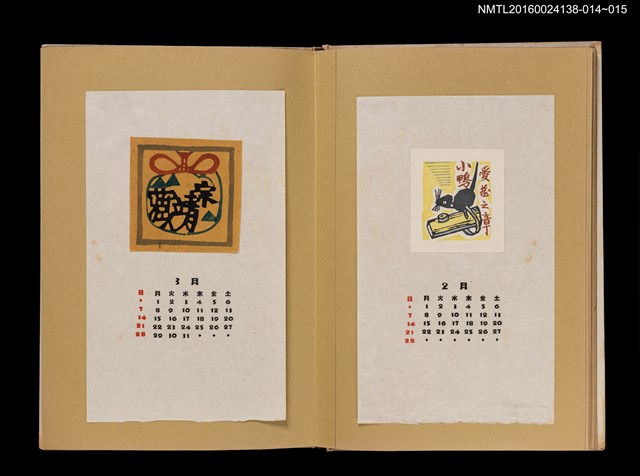 NMTL20160024138-014~015
愛
之章
小鴨
2月
日 月 火 水 木 金 土
• 1 2 3 4 5 6
7 8 9 10 11 12 13
14 15 16 17 18 19 20
21 22 23 24 25 26 27
28 • • • • • •
宗
靖
3月
日 月 火 水 木 金 土
• 1 2 3 4 5 6
7 8 9 10 11 12 13
14 15 16 17 18 19 20
21 22 23 24 25 26 27
28 29 30 31 • • •